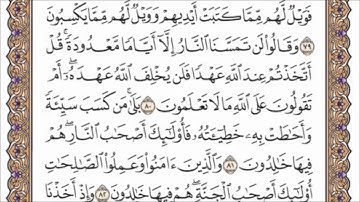 فَوَيْلٌ لَّهُم مِّمَّا كَتَبَتْ أَيْدِيهِمْ وَوَيْلٌ لَّهُم مِّمَّا يَكْسِبُونَ
٧٩ وَقَالُوا۟ لَن تَمَسَّنَا ٱلنَّارُ إِلَّآ أَيَّامًا مَّعْدُودَةً ۚ قُلْ
أَتَّخَذْتُمْ عِندَ ٱللَّهِ عَهْدًا فَلَن يُخْلِفَ ٱللَّهُ عَهْدَهُۥٓ ۖ أَمْ
تَقُولُونَ عَلَى ٱللَّهِ مَا لَا تَعْلَمُونَ ٨٠ بَلَىٰ مَن كَسَبَ سَيِّئَةً
وَأَحَٰطَتْ بِهِۦ خَطِيٓـَٔتُهُۥ فَأُو۟لَٰٓئِكَ أَصْحَٰبُ ٱلنَّارِ ۖ هُمْ
فِيهَا خَٰلِدُونَ ٨١ وَٱلَّذِينَ ءَامَنُوا۟ وَعَمِلُوا۟ ٱلصَّٰلِحَٰتِ
أُو۟لَٰٓئِكَ أَصْحَٰبُ ٱلْجَنَّةِ ۖ هُمْ فِيهَا خَٰلِدُونَ ٨٢ وَإِذْ أَخَذْنَا